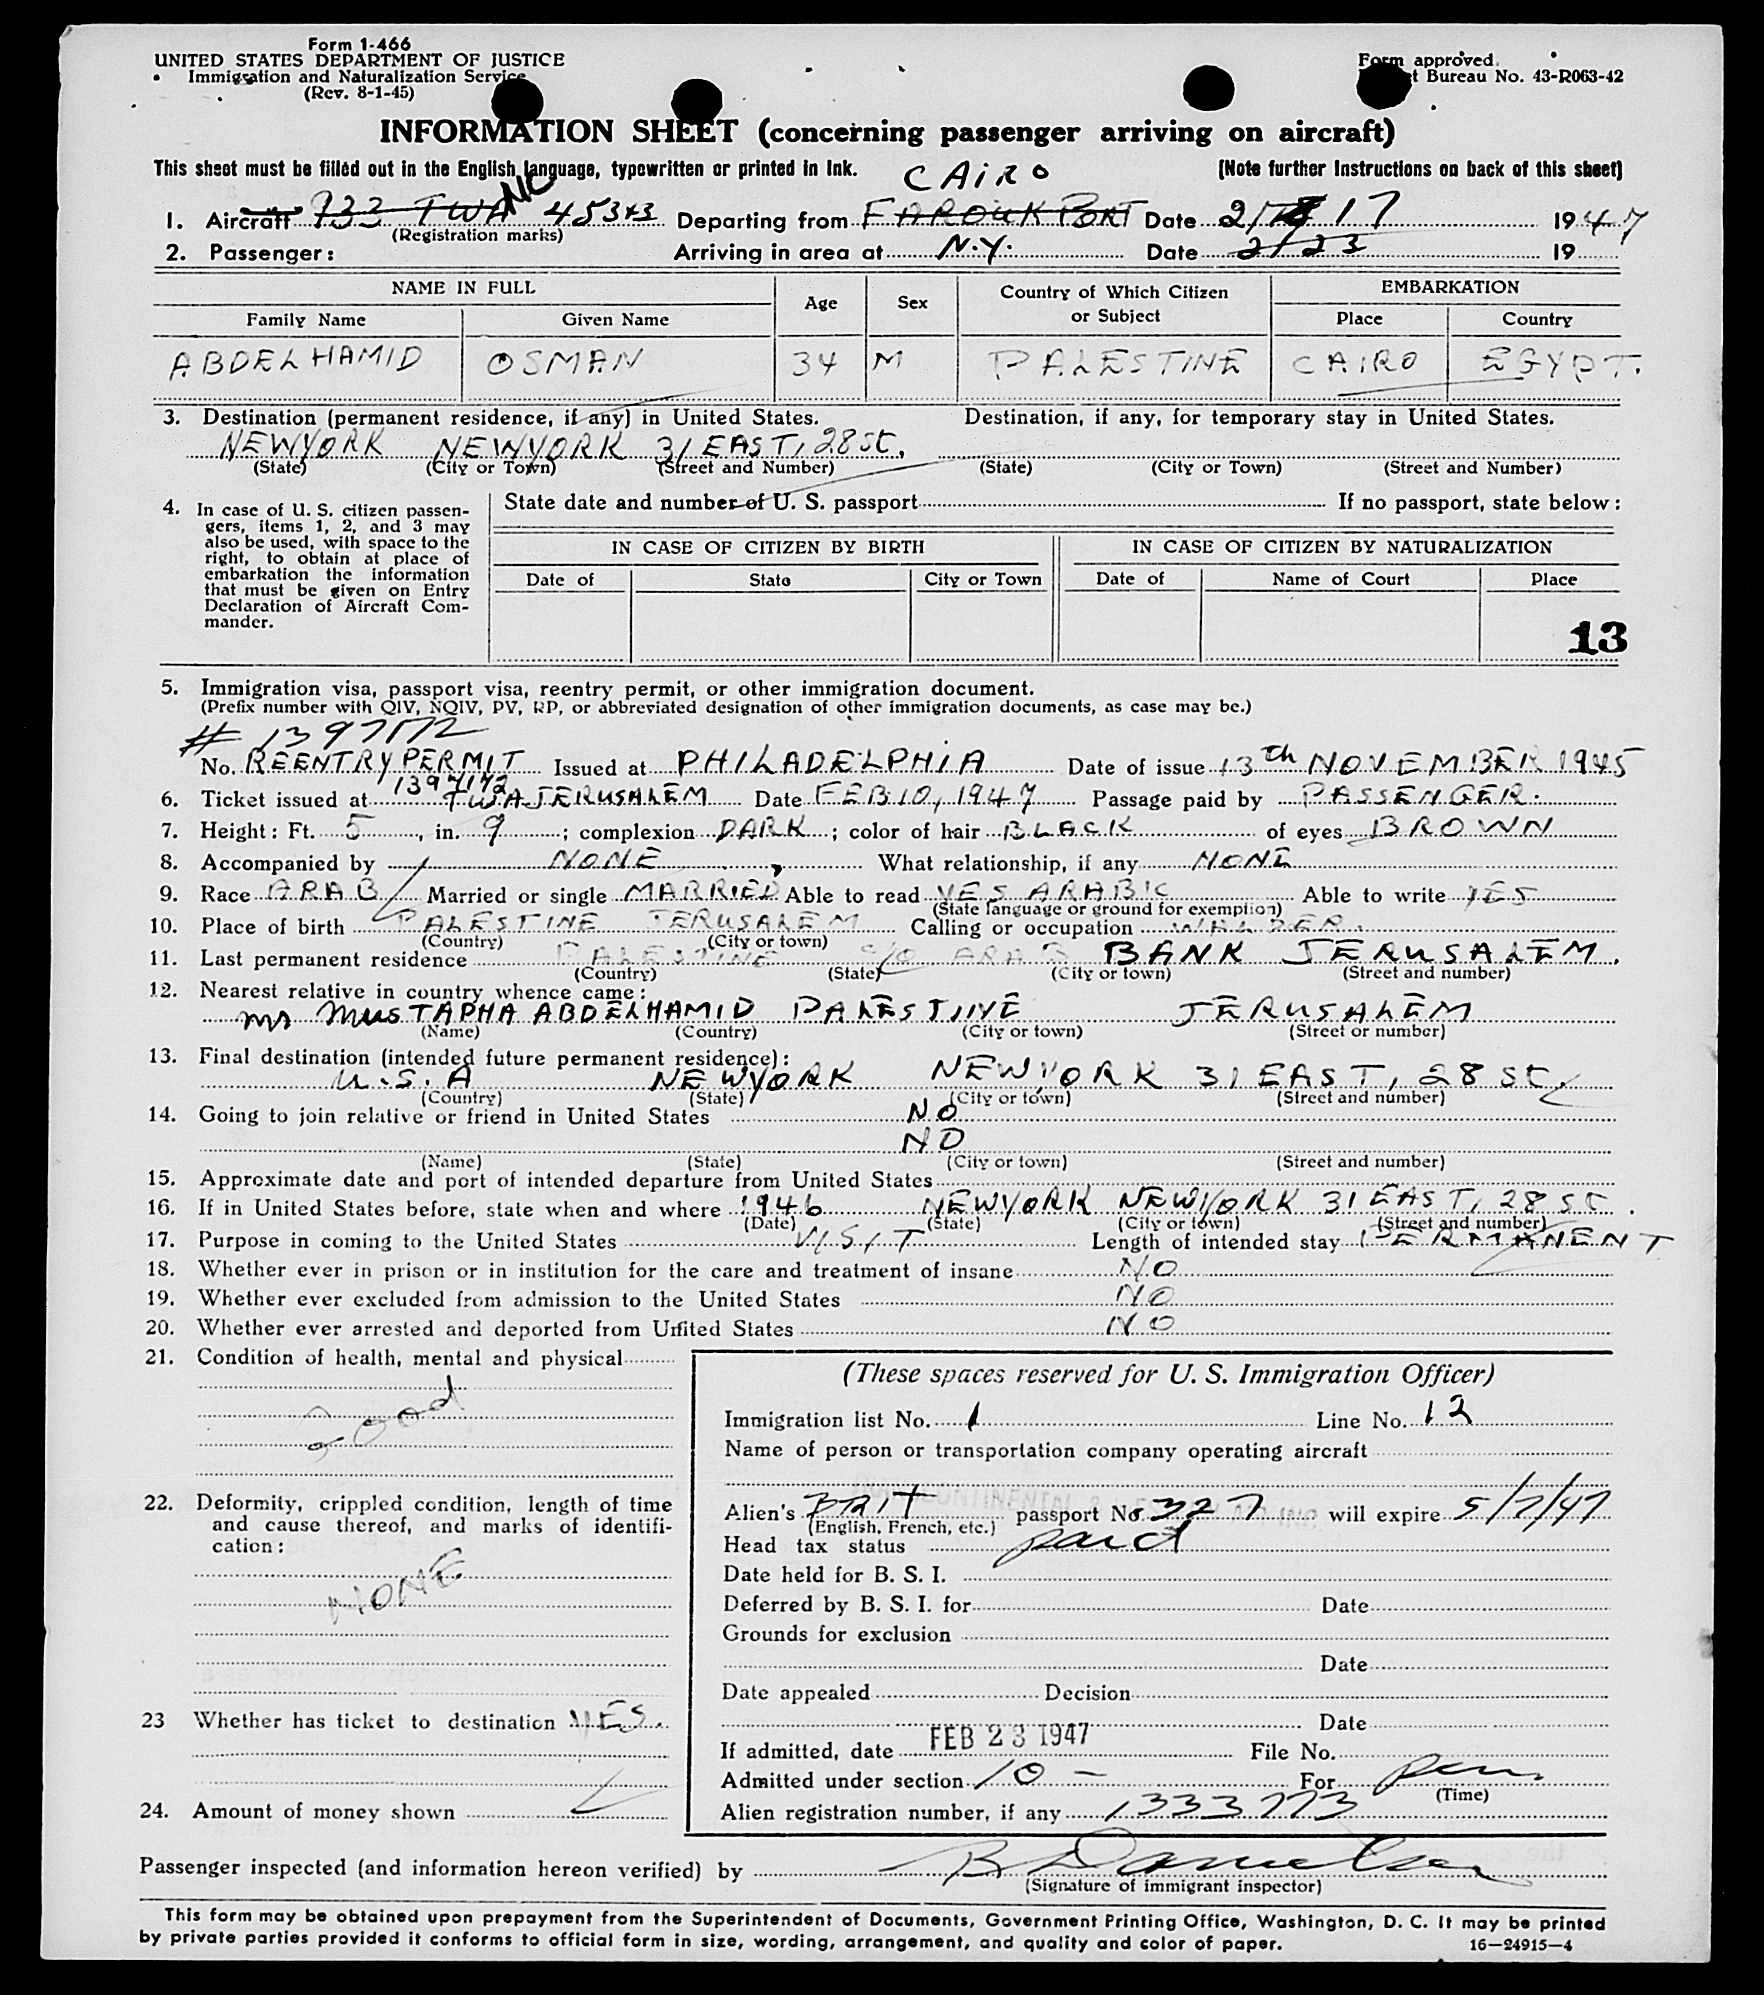 Form 1-466
UNITED STATES DEPARTMENT OF JUSTICE
Immigration and Naturalization Service
(Rev. 8-1-45)
Form approved.
Bureau No. 43-R063-42
INFORMATION SHEET (concerning passenger arriving on aircraft)
This sheet must be filled out in the English language, typewritten or printed in ink.
[Note further instructions on back of this sheet]
CAIRO
1. Aircraft 933 TWA NC 45343 Departing from FAROUK PORT Date 2/17 1947
(Registration marks)
2. Passenger: Arriving in area at N.Y. Date 2/23 19
NAME IN FULL Age Sex Country of Which Citizen or Subject EMBARKATION
Family Name Given Name Place Country
ABDELHAMID OSMAN 34 M PALESTINE CAIRO EGYPT.
3. Destination (permanent residence, if any) in United States. Destination, if any, for temporary stay in United States.
NEWYORK NEWYORK 31 EAST, 28 St.
(State) (City or Town) (Street and Number) (State) (City or Town) (Street and Number)
4. In case of U. S. citizen passengers, items 1, 2, and 3 may also be used, with space to the right, to obtain at place of embarkation the information that must be given on Entry Declaration of Aircraft Commander.
State date and number of U. S. passport If no passport, state below:
IN CASE OF CITIZEN BY BIRTH IN CASE OF CITIZEN BY NATURALIZATION
Date of State City or Town Date of Name of Court Place
13
5. Immigration visa, passport visa, reentry permit, or other immigration document.
(Prefix number with QIV, NQIV, PV, RP, or abbreviated designation of other immigration documents, as case may be.)
# 1397172
No. REENTRY PERMIT Issued at PHILADELPHIA Date of issue 13th NOVEMBER 1945
1397172
6. Ticket issued at TWA JERUSALEM Date FEB 10, 1947 Passage paid by PASSENGER.
7. Height: Ft. 5, in. 9; complexion DARK; color of hair BLACK of eyes BROWN
8. Accompanied by NONE What relationship, if any NONE
9. Race ARAB Married or single MARRIED Able to read YES ARABIC Able to write YES
(State language or ground for exemption)
10. Place of birth PALESTINE JERUSALEM Calling or occupation WELDER.
(Country) (City or town)
11. Last permanent residence PALESTINE C/O ARAB BANK JERUSALEM.
(Country) (State) (City or town) (Street and number)
12. Nearest relative in country whence came:
Mr MUSTAPHA ABDELHAMID PALESTINE JERUSALEM
(Name) (Country) (City or town) (Street or number)
13. Final destination (intended future permanent residence):
U.S.A NEWYORK NEWYORK 31 EAST, 28 St.
(Country) (State) (City or town) (Street and number)
14. Going to join relative or friend in United States NO
NO
(Name) (State) (City or town) (Street and number)
15. Approximate date and port of intended departure from United States
16. If in United States before, state when and where 1946 NEWYORK NEWYORK 31 EAST, 28 St.
(Date) (State) (City or town) (Street and number)
17. Purpose in coming to the United States VISIT Length of intended stay PERMANENT
18. Whether ever in prison or in institution for the care and treatment of insane NO
19. Whether ever excluded from admission to the United States NO
20. Whether ever arrested and deported from United States NO
21. Condition of health, mental and physical
Good
22. Deformity, crippled condition, length of time and cause thereof, and marks of identification:
NONE
23 Whether has ticket to destination YES.
24. Amount of money shown
(These spaces reserved for U. S. Immigration Officer)
Immigration list No. 1 Line No. 12
Name of person or transportation company operating aircraft
Alien's BRIT passport No. 327 will expire 5/7/47
(English, French, etc.)
Head tax status paid
Date held for B. S. I.
Deferred by B. S. I. for Date
Grounds for exclusion
Date
Date appealed Decision
Date
If admitted, date FEB 23 1947 File No.
Admitted under section 10 - For per.
(Time)
Alien registration number, if any 1333773
Passenger inspected (and information hereon verified) by B Danielson
(Signature of immigrant inspector)
This form may be obtained upon prepayment from the Superintendent of Documents, Government Printing Office, Washington, D. C. It may be printed
by private parties provided it conforms to official form in size, wording, arrangement, and quality and color of paper.
16—24915—4